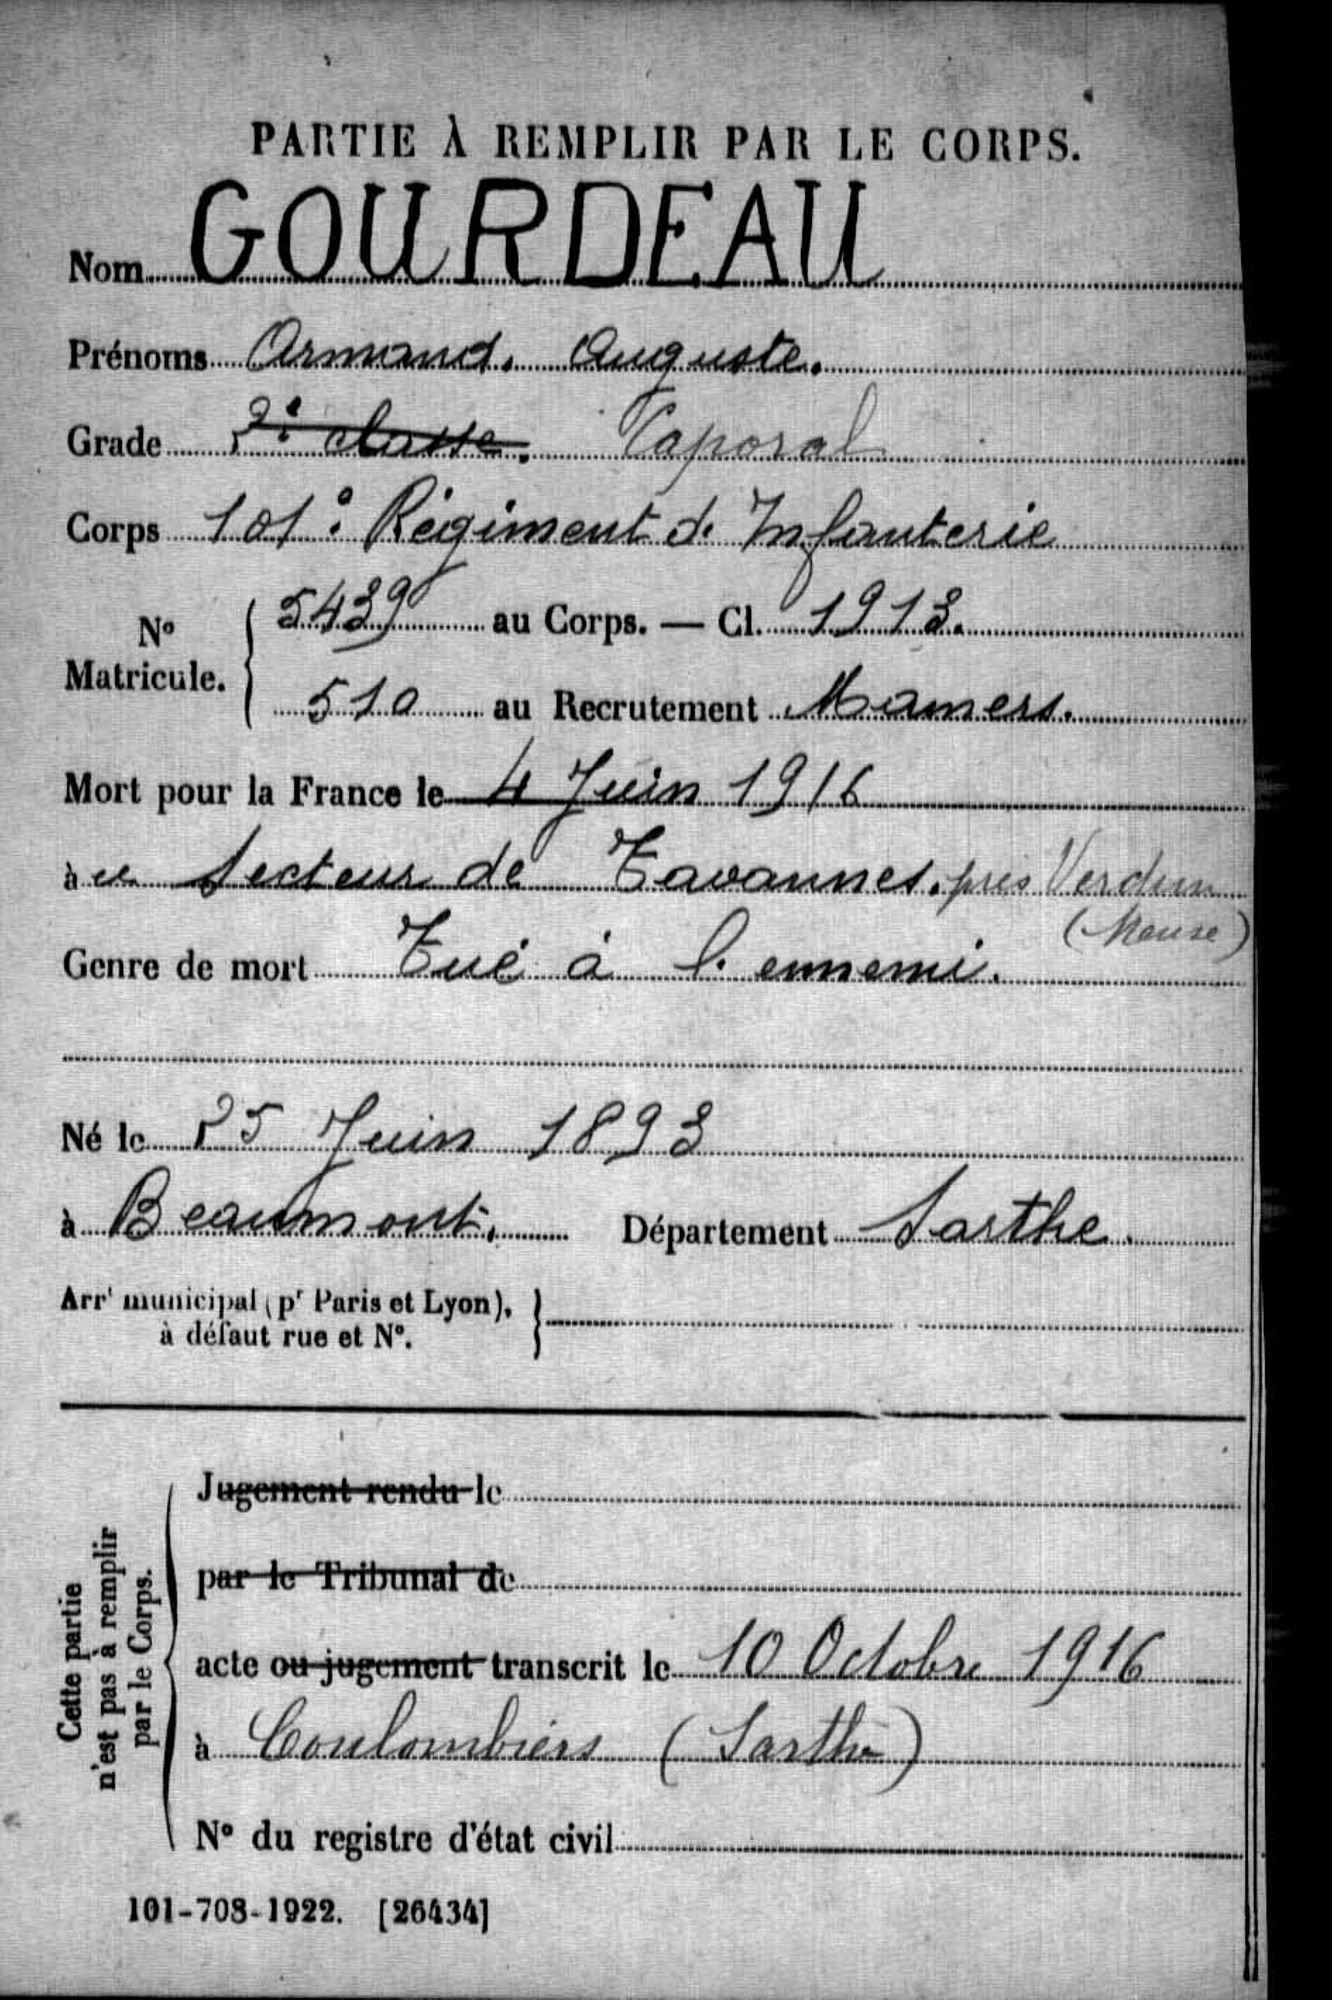 PARTIE À REMPLIR PAR LE CORPS.
Nom GOURDEAU
Prénoms Armand. Auguste.
Grade 2e classe. Caporal
Corps 101e Régiment d' Infanterie
No Matricule. 5439 au Corps. — Cl. 1913.
510 au Recrutement Mamers.
Mort pour la France le 4 Juin 1916
à Secteur de Tavannes. près Verdun
(Meuse)
Genre de mort Tué à l'ennemi.
Né le 25 Juin 1893
à Beaumont. Département Sarthe.
Arrt municipal (pr Paris et Lyon),
à défaut rue et No.
Cette partie
n'est pas à remplir
par le Corps.
Jugement rendu le
par le Tribunal de
acte ou jugement transcrit le 10 Octobre 1916
à Coulombiers (Sarthe)
No du registre d'état civil
101-708-1922. [26434]